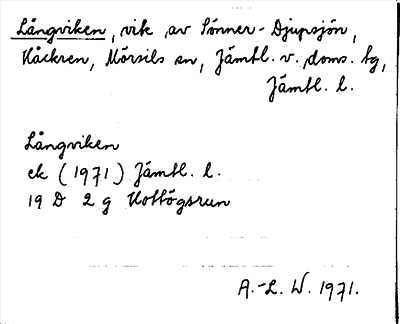 Långviken, vik av Sönner-Djupsjön,
Kåckren, Mörsils sn, Jämtl. v. doms. tg,
Jämtl. l.
Långviken
ek (1971) Jämtl. l.
19 D 2 g Hottögsrun
A.-L. W. 1971.